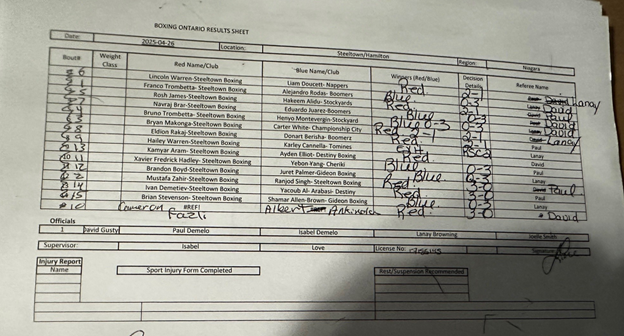 BOXING ONTARIO RESULTS SHEET
Date: 2025-04-26 Location: Steeltown/Hamilton Region: Niagara
Bout# Weight Class Red Name/Club Blue Name/Club Winners (Red/Blue) Decision Details Referee Name
6 Lincoln Warren-Steeltown Boxing Liam Doucett- Nappers Red
1 Franco Trombetta- Steeltown Boxing Alejandro Rodas- Boomers Blue Lanay
5 Rosh James-Steeltown Boxing Hakeem Alidu- Stockyards Red 0-3 David
7 Navraj Brar-Steeltown Boxing Eduardo Juarez-Boomers Blue Paul
4 Bruno Trombetta- Steeltown Boxing Henyo Montevergin-Stockyard Blue 0-3 David
3 Bryan Makonga-Steeltown Boxing Carter White- Championship City Red David
8 Eldion Rakaj-Steeltown Boxing Donart Berisha- Boomers Red Lanay
9 Hailey Warren-Steeltown Boxing Karley Cannella- Tomines Paul
13 Xamyar Aram- Steeltown Boxing Ayden Elliot- Destiny Boxing Red Lanay
11 Xavier Fredrick Hadley- Steeltown Boxing Yebon Yang- Cheriki Blue David
12 Brandon Boyd-Steeltown Boxing Juret Palmer-Gideon Boxing Blue 0-3 Paul
2 Mustafa Zahir- Steeltown Boxing Ranjod Singh- Steeltown Boxing Red Lanay
14 Ivan Demetiev-Steeltown Boxing Yacoub Al- Arabasi- Destiny Red 3-0 Paul
15 Brian Stevenson- Steeltown Boxing Shamar Allen-Brown- Gideon Boxing Blue 0-3 Lanay
10 Cameron Fazli BREF! Albert Red 3-0 David
Officials
1 David Gusty Paul Demelo Isabel Demelo Lanay Browning
Supervisor: Isabel Love License No:
Injury Report
Name Sport Injury Form Completed Rest/Suspension Recommended